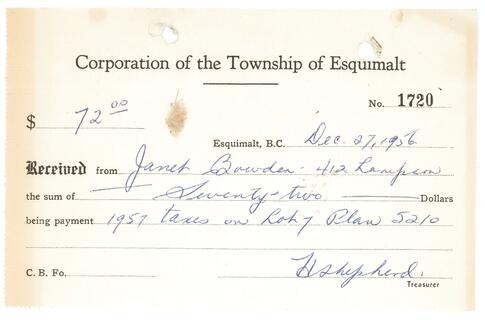 Corporation of the Township of Esquimalt
No. 1720
$ 72.00
Esquimalt, B.C. Dec. 27, 1956
Received from Janet Bowden - 412 Lampson
the sum of Seventy-two Dollars
being payment 1957 taxes on Lot 7 Plan 5210
C. B. Fo. H Shepherd.
Treasurer